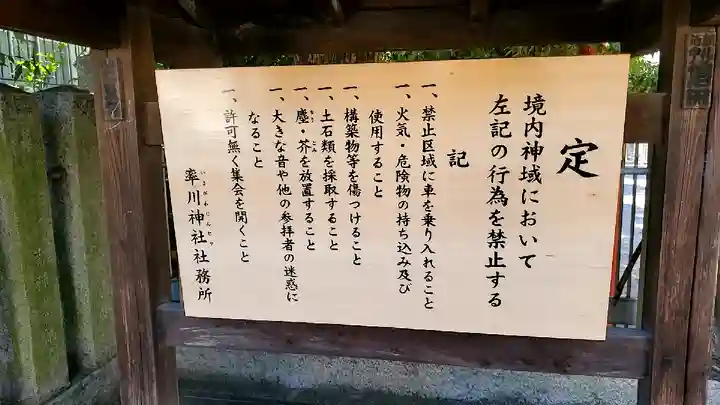 定
境内神域において
左記の行為を禁止する
記
一、禁止区域に車を乗り入れること
一、火気・危険物の持ち込み及び
使用すること
一、構築物等を傷つけること
一、土石類を採取すること
一、塵・芥を放置すること
一、大きな音や他の参拝者の迷惑に
なること
一、許可無く集会を開くこと
率川神社社務所